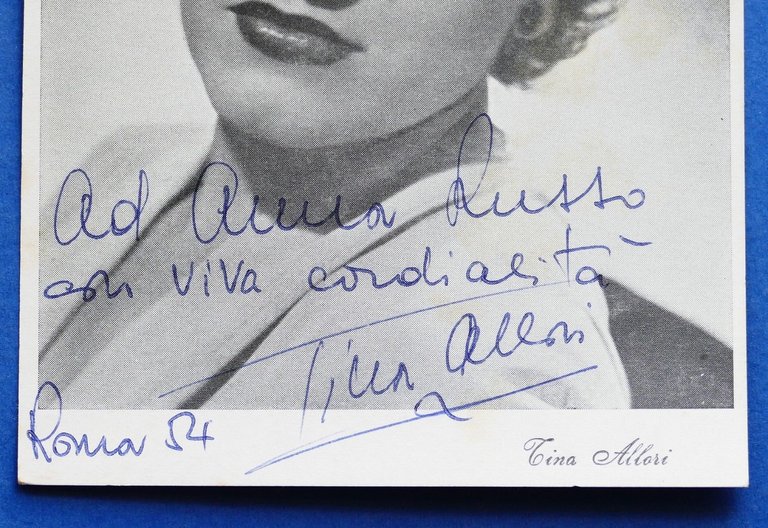 Ad Anna Russo
con viva cordialità
Tina Allori
Roma 54
Tina Allori